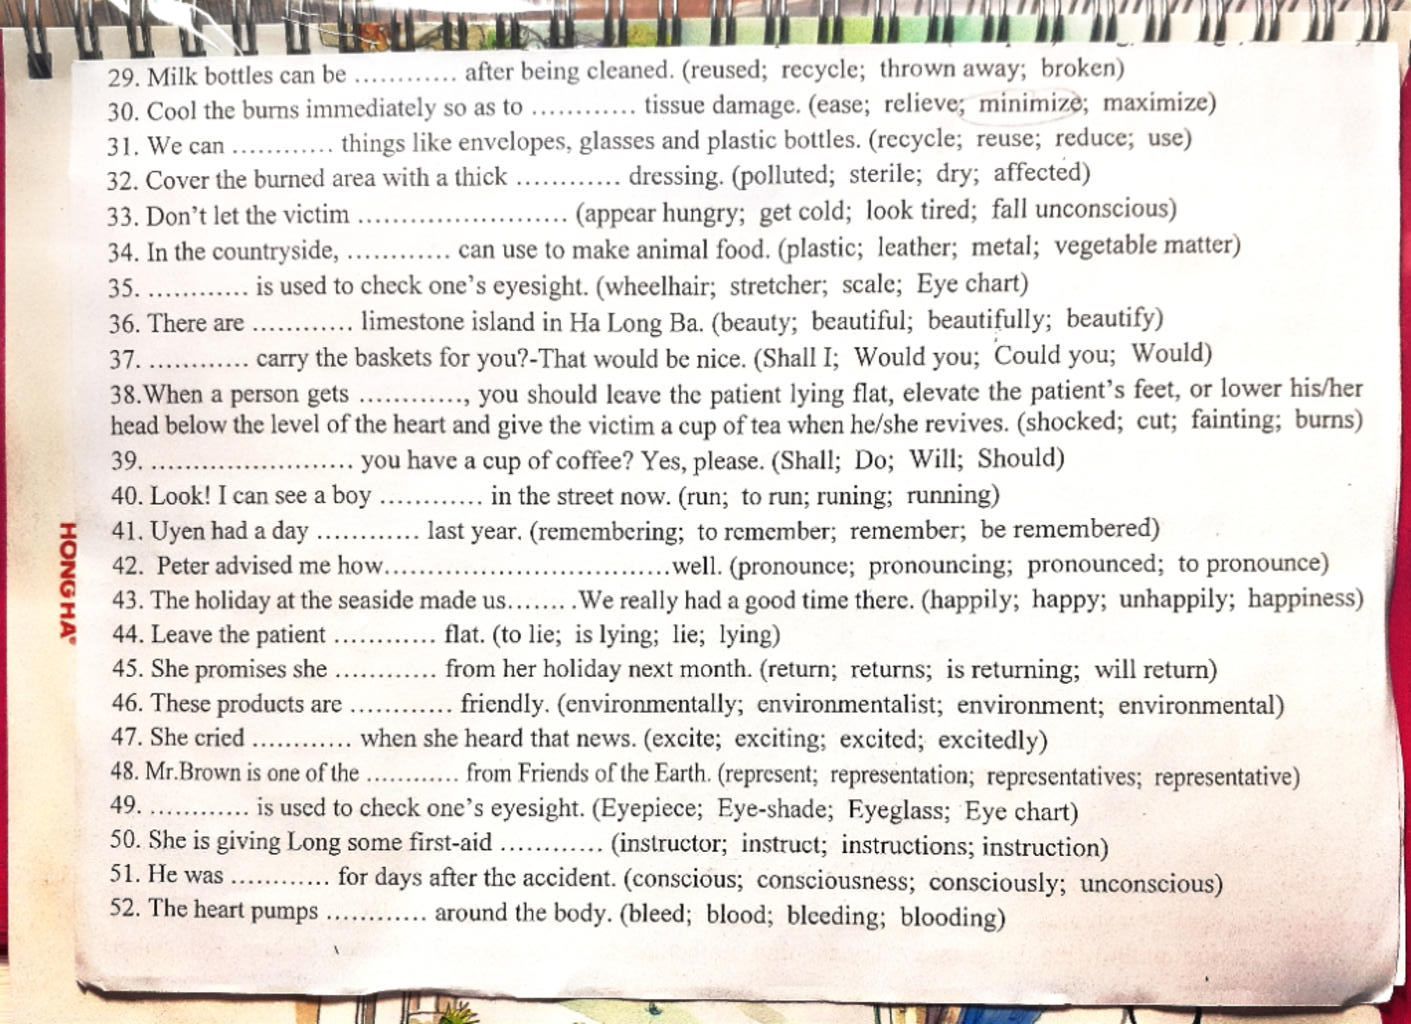 29. Milk bottles can be ............ after being cleaned. (reused; recycle; thrown away; broken)
30. Cool the burns immediately so as to ............ tissue damage. (ease; relieve; minimize; maximize)
31. We can ............ things like envelopes, glasses and plastic bottles. (recycle; reuse; reduce; use)
32. Cover the burned area with a thick ............ dressing. (polluted; sterile; dry; affected)
33. Don't let the victim ........................ (appear hungry; get cold; look tired; fall unconscious)
34. In the countryside, ............ can use to make animal food. (plastic; leather; metal; vegetable matter)
35. ............ is used to check one's eyesight. (wheelhair; stretcher; scale; Eye chart)
36. There are ............ limestone island in Ha Long Ba. (beauty; beautiful; beautifully; beautify)
37. ............ carry the baskets for you?-That would be nice. (Shall I; Would you; Could you; Would)
38.When a person gets ............, you should leave the patient lying flat, elevate the patient's feet, or lower his/her
head below the level of the heart and give the victim a cup of tea when he/she revives. (shocked; cut; fainting; burns)
39. ........................ you have a cup of coffee? Yes, please. (Shall; Do; Will; Should)
40. Look! I can see a boy ............ in the street now. (run; to run; runing; running)
41. Uyen had a day ............ last year. (remembering; to remember; remember; be remembered)
42. Peter advised me how.................................well. (pronounce; pronouncing; pronounced; to pronounce)
43. The holiday at the seaside made us........We really had a good time there. (happily; happy; unhappily; happiness)
44. Leave the patient ............ flat. (to lie; is lying; lie; lying)
45. She promises she ............ from her holiday next month. (return; returns; is returning; will return)
46. These products are ............ friendly. (environmentally; environmentalist; environment; environmental)
47. She cried ............ when she heard that news. (excite; exciting; excited; excitedly)
48. Mr.Brown is one of the ............ from Friends of the Earth. (represent; representation; representatives; representative)
49. ............ is used to check one's eyesight. (Eyepiece; Eye-shade; Eyeglass; Eye chart)
50. She is giving Long some first-aid ............ (instructor; instruct; instructions; instruction)
51. He was ............ for days after the accident. (conscious; consciousness; consciously; unconscious)
52. The heart pumps ............ around the body. (bleed; blood; bleeding; blooding)
HONG HA